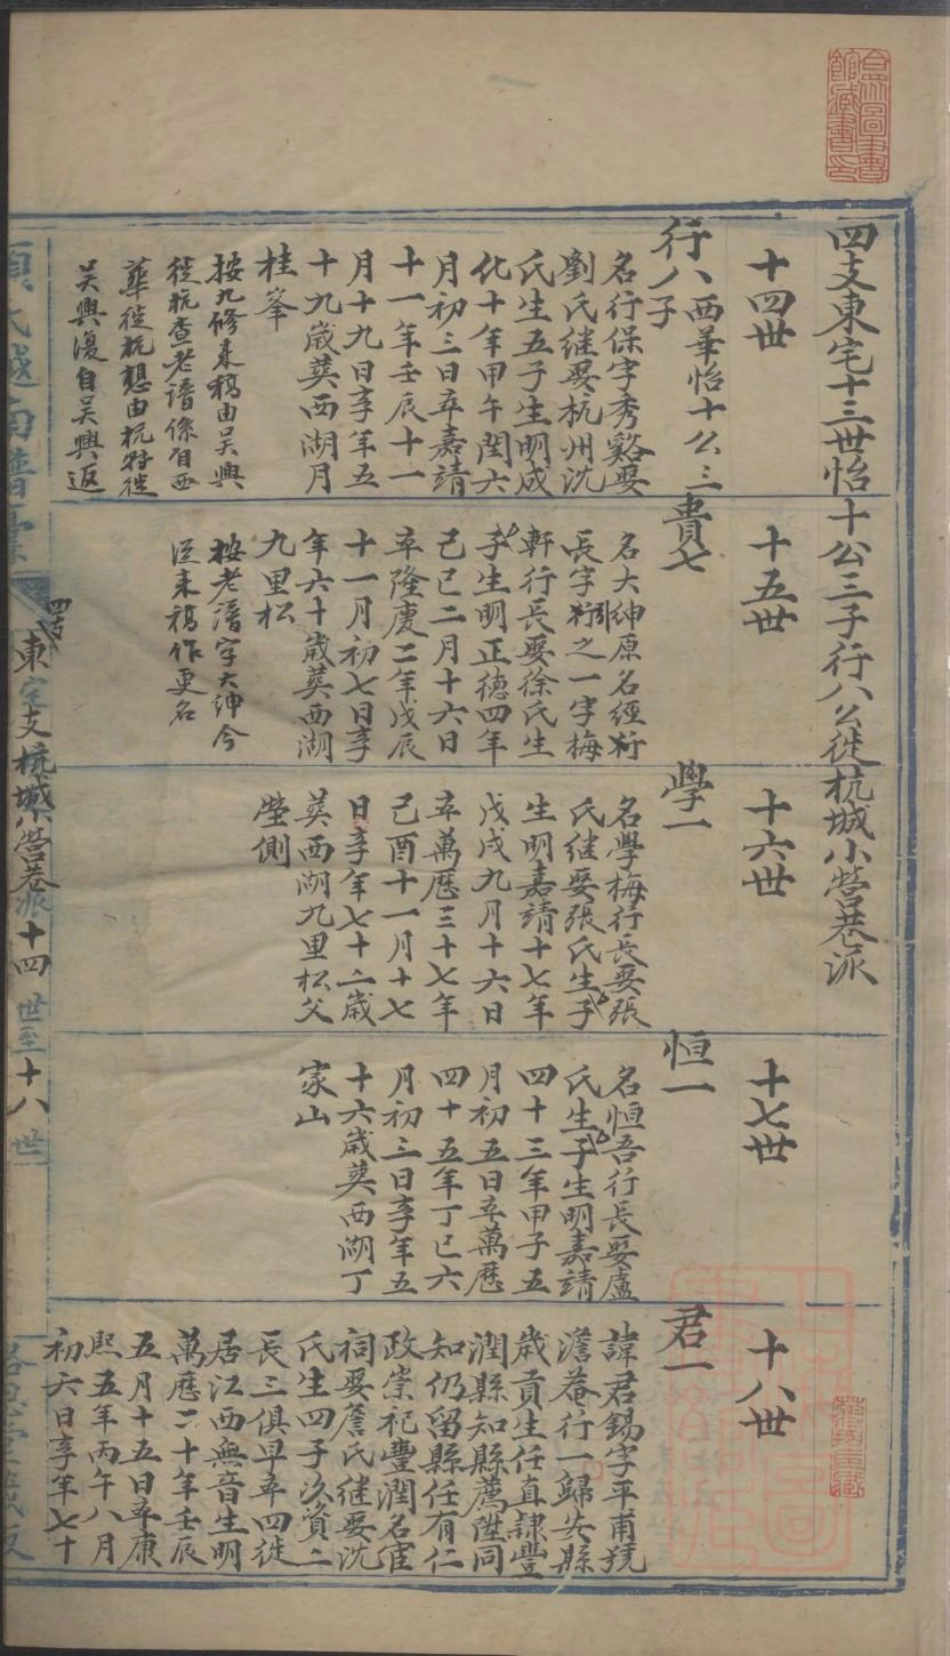 四支東宅十三世怡十公三子行八公徙杭城小營巷派
十四世
行八
西華怡十公三
子
名行保字秀谿娶
劉氏继娶杭州沈
氏生五子生明成
化十年甲午閏六
月初三日卒嘉靖
十一年壬辰十一
月十九日享年五
十九歲葬西湖月
桂峯
按九修未稿由吴興
徙杭查老譜係自西
華徙杭想由杭轉徙
吴興復自吴興返
十五世
貴七
名大紳原名經衍
長字衍之一字梅
軒行長娶徐氏生
子生明正德四年
己巳二月十六日
卒隆慶二年戊辰
十一月初七日享
年六十歲葬西湖
九里松
按老譜字大紳今
從来稿作更名
十六世
學一
名學梅行長娶張
氏继娶張氏生子
生明嘉靖十七年
戊戌九月十六日
卒萬歷三十七年
己酉十一月十七
日享年七十二歲
葬西湖九里松父
塋側
十七世
恒一
名恒吾行長娶盧
氏生子生明嘉靖
四十三年甲子五
月初五日卒萬歷
四十五年丁巳六
月初三日享年五
十六歲葬西湖丁
家山
十八世
君一
諱君錫字平甫號
澹菴行一歸安縣
歲貢生任直隷豐
潤縣知縣薦陞同
知仍留縣任有仁
政崇祀豐潤名宦
祠娶詹氏继娶沈
氏生四子次貧二
長三俱早卒四徙
居江西無音生明
萬歷二十年壬辰
五月十五日卒康
熙五年丙午八月
初六日享年七十
四支
東宅支杭城小營巷派十四世至十八世